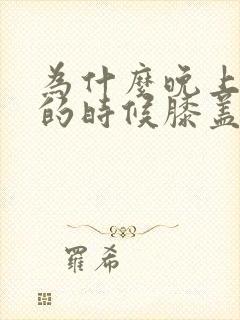 為什麼晚上
的時候膝蓋
羅希